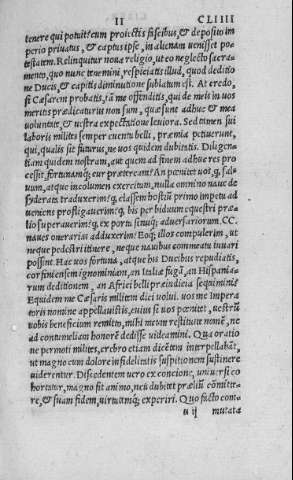 II CLIIII
tenere qui potuit? cum proiectis fascibus, & deposito im
perio priuatus, & captus ipse, in alienam uenisset po
testatem. Relinquitur noua religio, ut eo neglecto sacra
mento, quo nunc tenemini, respiciatis illud, quod deditio
ne Ducis, & capitis diminutione sublatum est. At credo,
si Cæsarem probatis, in me offenditis, qui de meis in uos
meritis prædicaturus non sum, quæ sunt adhuc & mea
uoluntate, & uestra expectatione leuiora. Sed tamen sui
laboris milites semper euentu belli, præmia petiuerunt,
qui, qualis sit futurus, ne uos quidem dubitatis. Diligen
tiam quidem nostram, aut quem ad finem adhuc res pro
cessit, fortunamq; cur præteream? An pœnitet uos, q, sal=
uum, atque incolumen exercitum, nulla omnino naue de
syderata traduxerim? q, classem hostiũ primo impetu ad
ueniens profligauerim? q, bis per biduum equestri præ
lio superauerim? q, ex portu sinuq; aduersariorum. CC.
naues onerarias adduxerim? Eoq; illos compulerim, ut
neque pedestri itinere, neque nauibus commeatu iuuari
possint. Hac uos fortuna, atque his Ducibus repudiatis,
corfiniensem ignominiam, an Italiæ fugã, an Hispani=
arum deditionem, an Africi belli præiudicia sequimini?
Equidem me Cæsaris militem dici uolui. uos me Impera
toris nomine appellauistis, cuius si uos pœnitet, uestrũ
uobis beneficium remitto, mihi meum restituite nomẽ, ne
ad contumeliam honorẽ dedisse uideamini. Qua oratio
ne permoti milites, crebro etiam dicẽtem interpellabãt,
ut magno cum dolore infidelitatis suspitionem sustinere
uiderentur. Discedentem uero ex concione, uniuersi co
hortatur, magno sit animo, neu dubitet præliũ cõmitte
re, & suam fidem, uirtutemq; experiri. Quo facto com=
u ij mutata